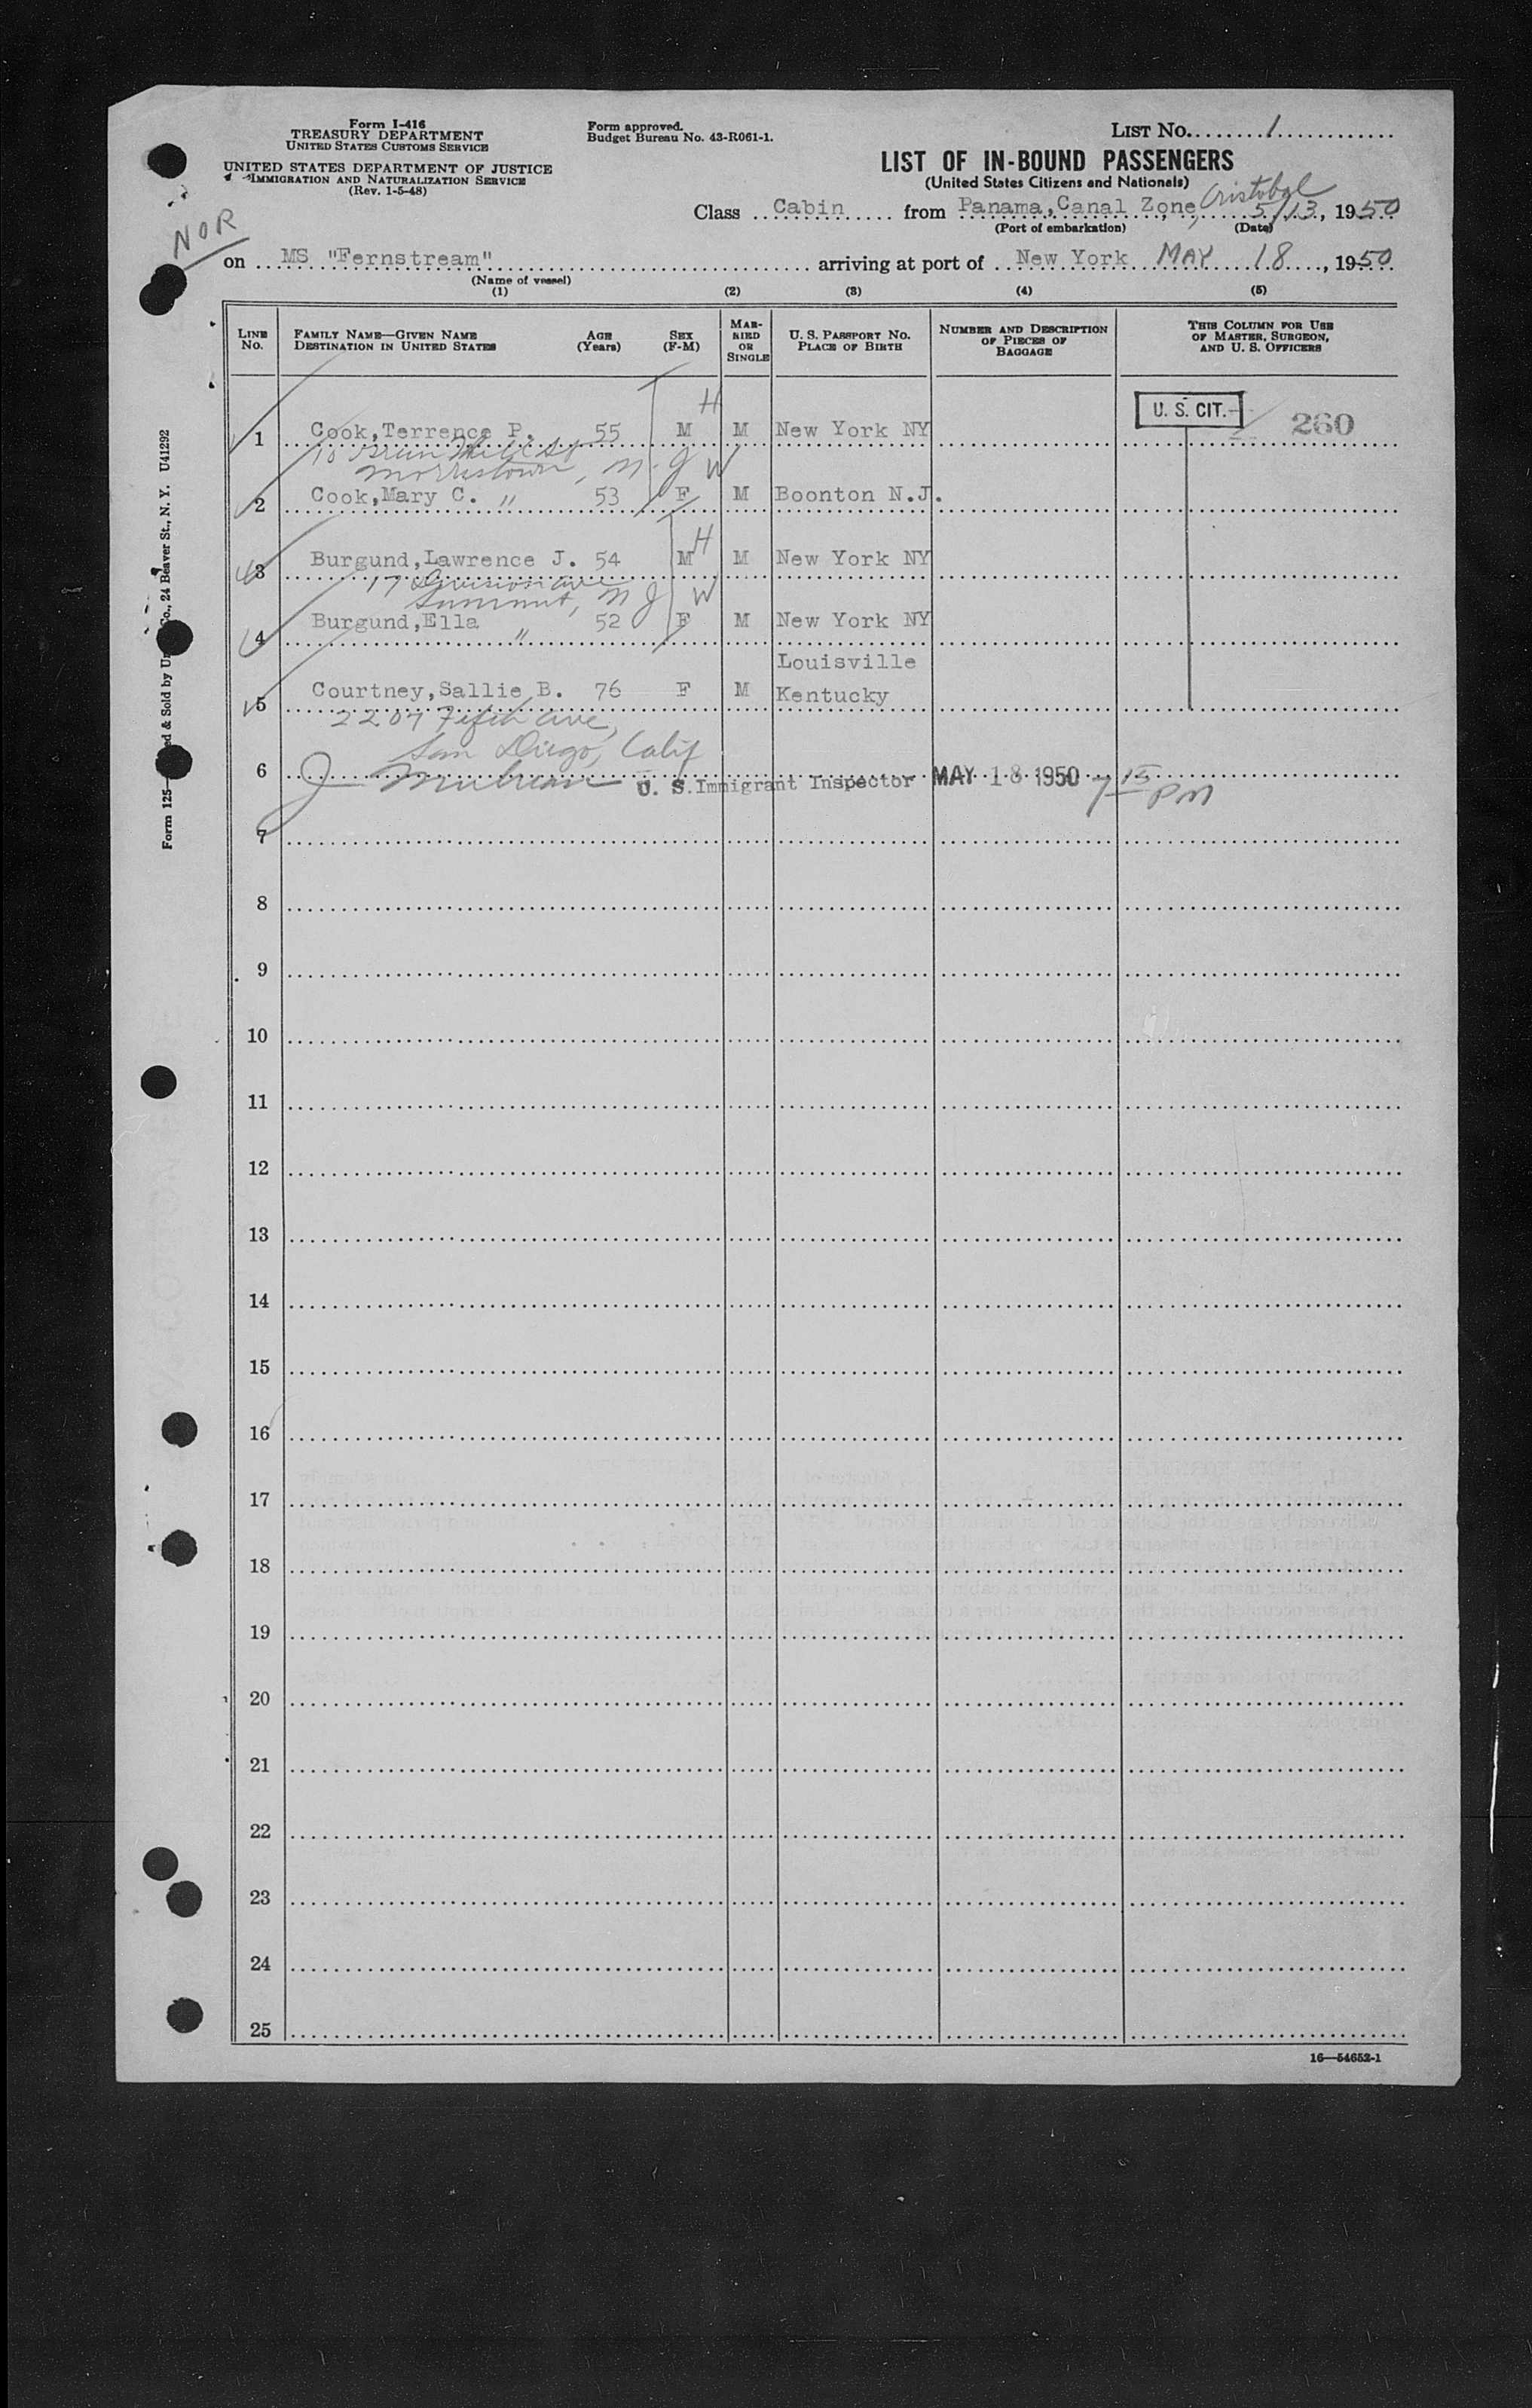 Form I-416
TREASURY DEPARTMENT
UNITED STATES CUSTOMS SERVICE
UNITED STATES DEPARTMENT OF JUSTICE
IMMIGRATION AND NATURALIZATION SERVICE
(Rev. 1-5-48)
Form approved.
Budget Bureau No. 43-R061-1.
LIST No. 1
LIST OF IN-BOUND PASSENGERS
(United States Citizens and Nationals)
Class Cabin from Panama, Canal Zone, Cristobal 5/13, 1950
(Port of embarkation) (Date)
NOR
on MS "Fernstream" arriving at port of New York MAY 18, 1950
(Name of vessel)
(1) (2) (3) (4) (5)
LINE No. FAMILY NAME—GIVEN NAME DESTINATION IN UNITED STATES AGE (Years) SEX (F-M) MARRIED OR SINGLE U. S. PASSPORT NO. PLACE OF BIRTH NUMBER AND DESCRIPTION OF PIECES OF BAGGAGE THIS COLUMN FOR USE OF MASTER, SURGEON, AND U. S. OFFICERS
H
U. S. CIT. 260
1 Cook,Terrence P. 55 M M New York NY
Morristown, N. J W
2 Cook,Mary C. " 53 F M Boonton N.J.
H
3 Burgund,Lawrence J. 54 M M New York NY
17 Division ave
Summit, N J W
4 Burgund,Ella " 52 F M New York NY
Louisville
5 Courtney,Sallie B. 76 F M Kentucky
2207 Fifth ave,
San Diego, Calif
6 U. S. Immigrant Inspector MAY 18 1950 7 15 PM
7
8
9
10
11
12
13
14
15
16
17
18
19
20
21
22
23
24
25
16—54652-1
Form 125— ed & Sold by U Co., 24 Beaver St., N. Y. U41292